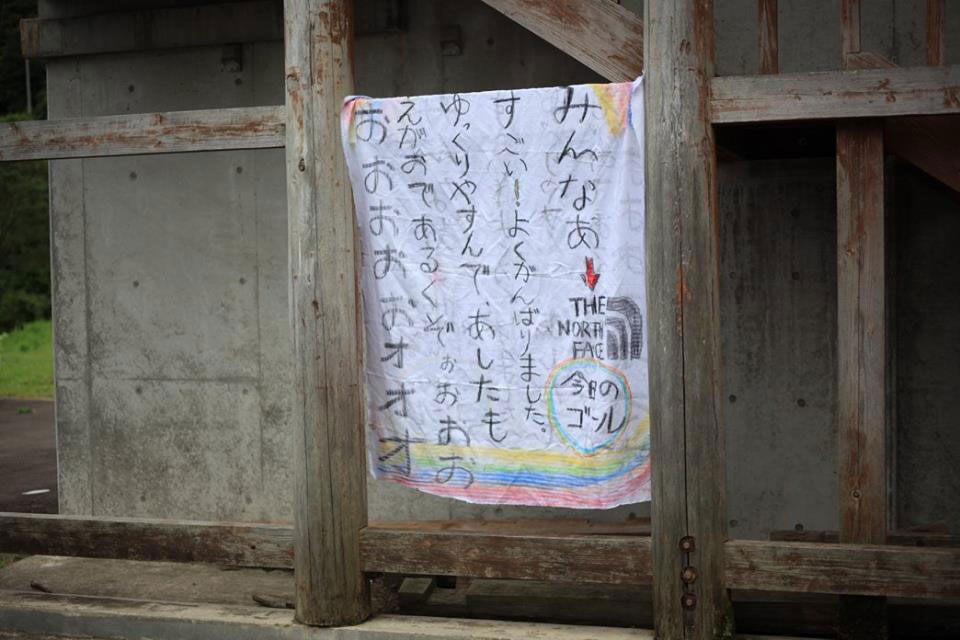 みんなあ
THE
NORTH
FACE
今日の
ゴール
すごい!よくがんばりました。
ゆっくりやすんで、あしたも
えがおであるくぞぉぉおお
おおおおおオオオ